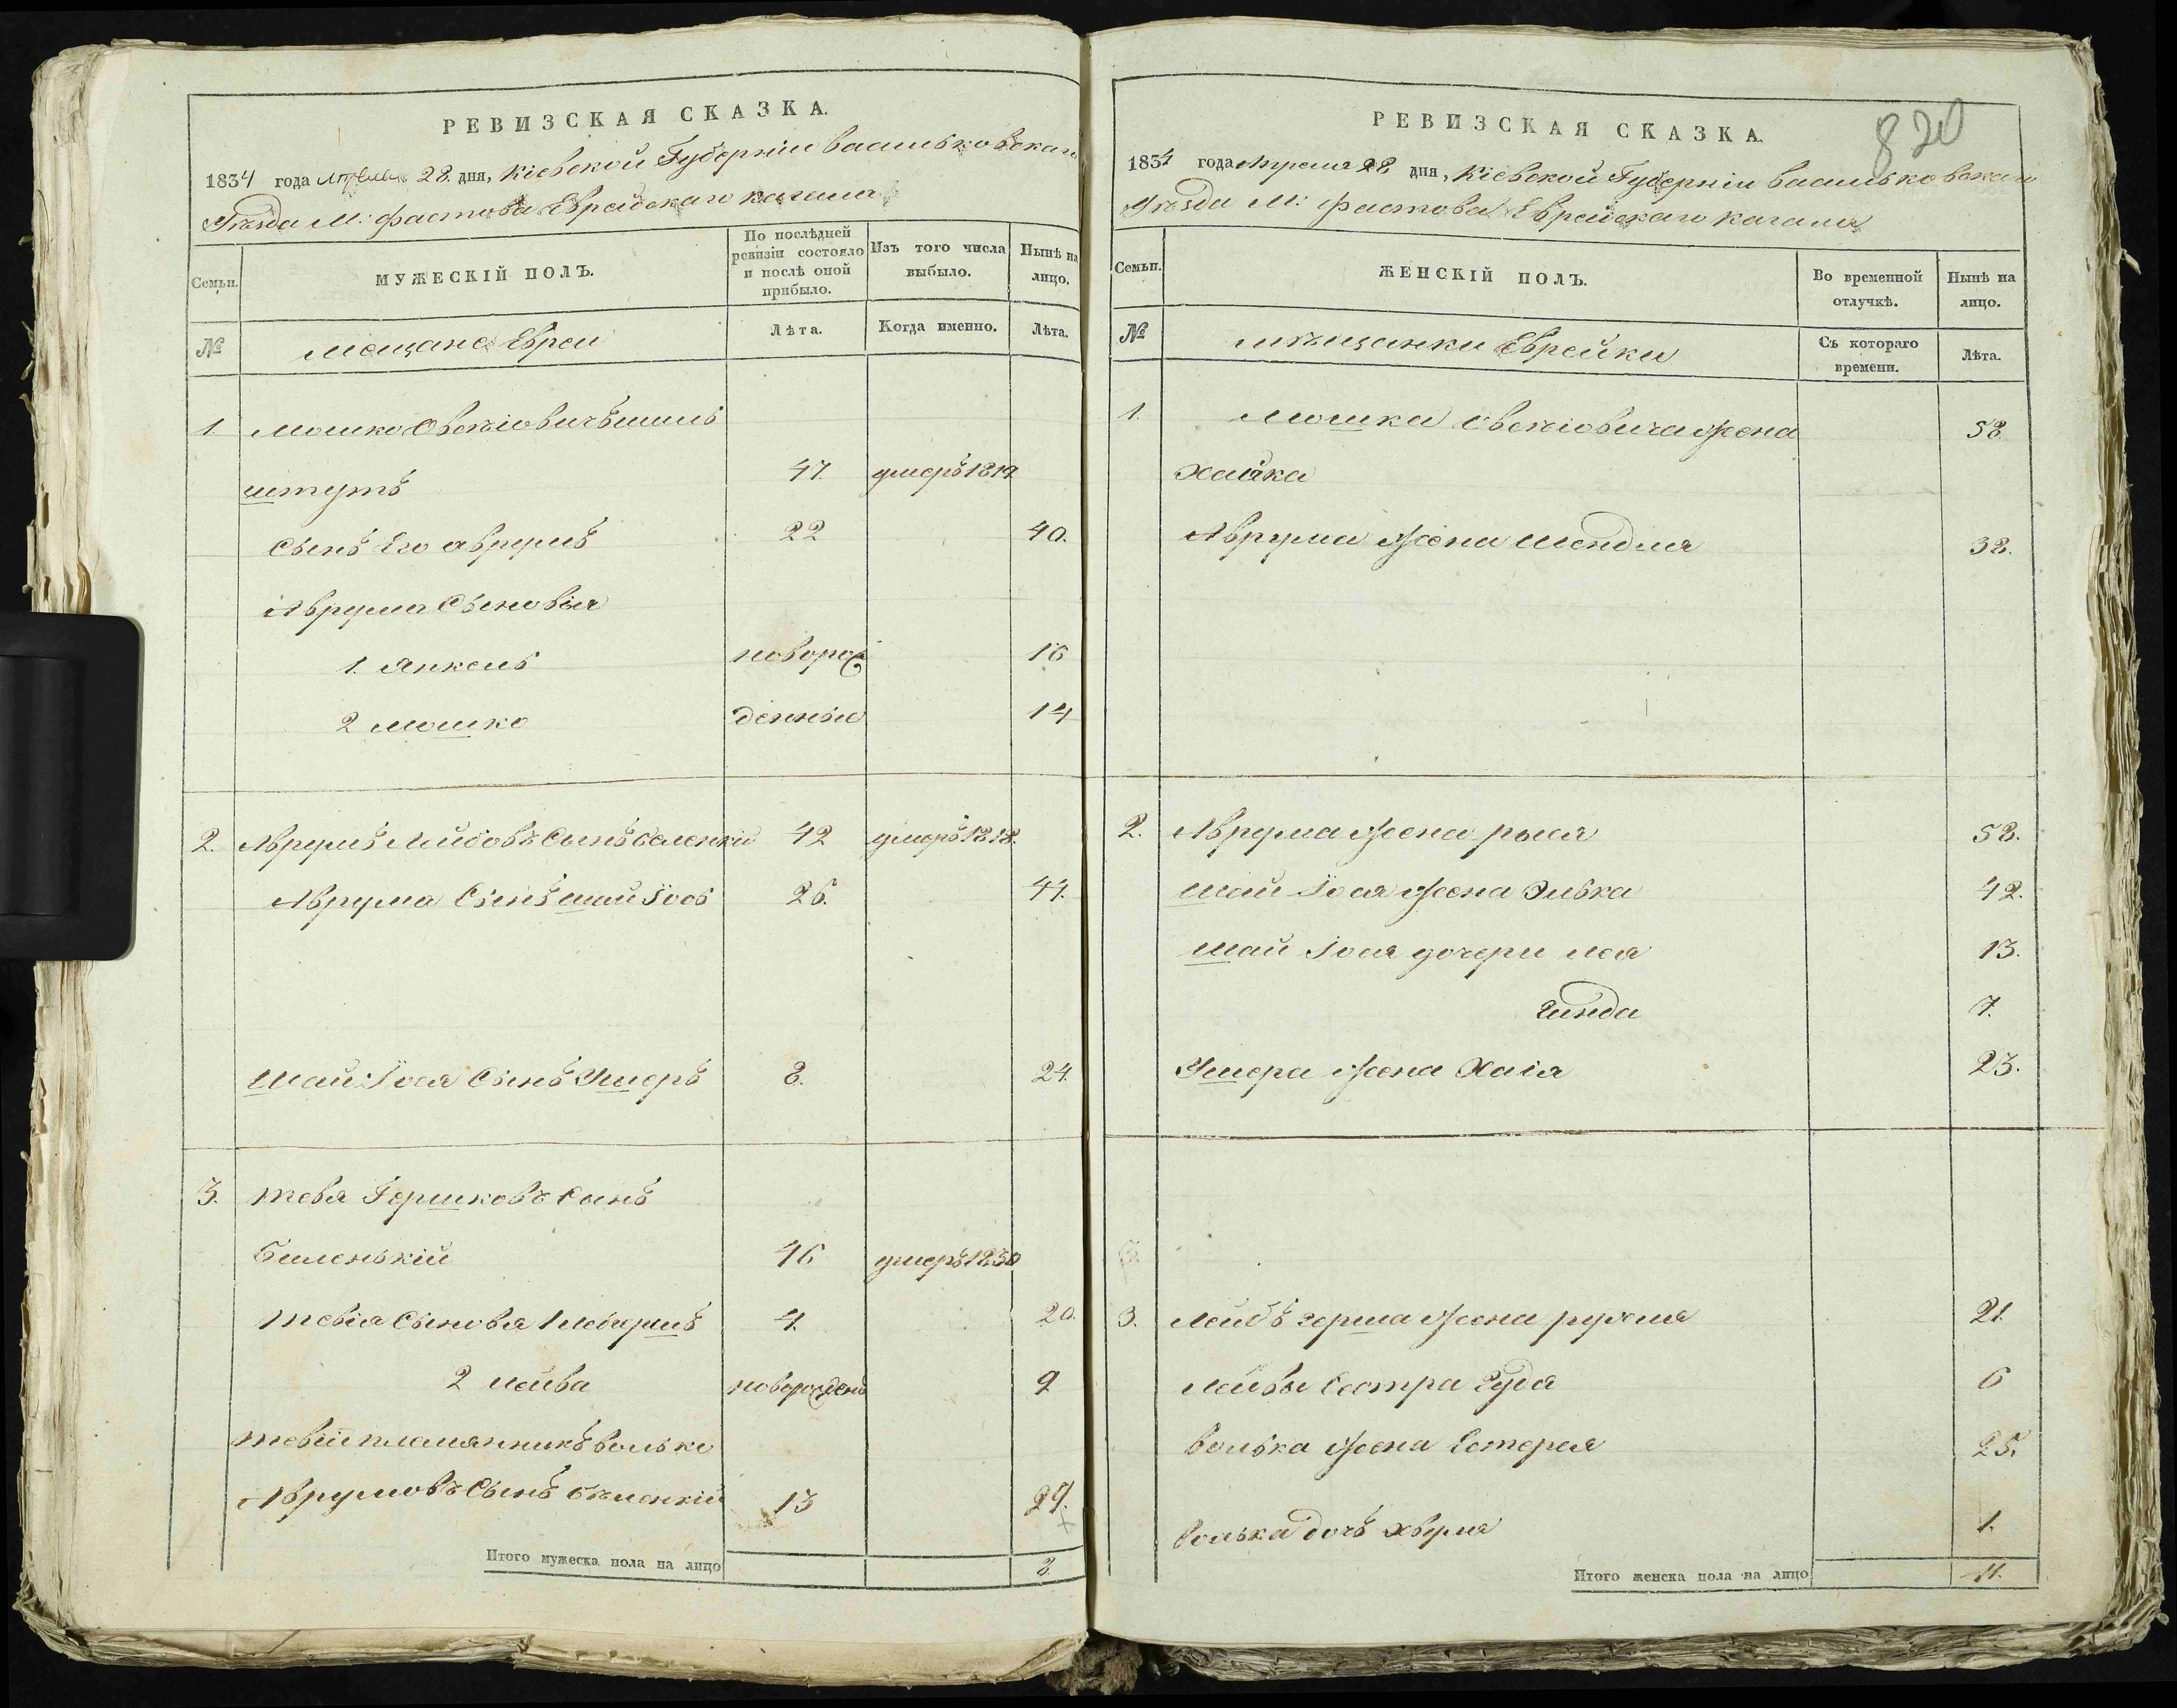 РЕВИЗСКАЯ СКАЗКА.
1834 года Апреля 28. дня, Кіевской Губерніи Васильковскаго
Уѣзда М: Фастова Еврейскаго кагала
Семьи.
МУЖЕСКІЙ ПОЛЪ.
По послѣдней ревизіи состояло и послѣ оной прибыло.
Изъ того числа выбыло.
Нынѣ на лицо.
№
Мещане Евреи
Лѣта.
Когда именно.
Лѣта.
1. Мошко Овсѣіовичъ
штутъ 47. умеръ 1819.
Сынъ Его Аврумъ 22 40.
Аврума Сыновья
1. Янкель новорож 16
2 Мошко денные 14
2. Аврумъ Лейбовъ Сынъ Беленкій 42 умеръ 1818.
Аврума Сынъ Шай Іось 26. 44.
Шай Іося Сынъ Ушеръ 8. 24.
3. Тевя Гершковъ Сынъ
Биленькій 46 умеръ 1830
Тевія Сыновя 1 4. 20.
2 Лейва новорожденъ 9
Тевіи пламянникъ Волько
Аврумовъ Сынъ Бѣленкій 13 29.
Итого мужеска пола на лицо 8.
820
РЕВИЗСКАЯ СКАЗКА.
1834 года Апреля 28 дня, Кіевской Губерніи Васильковскаго
Уѣзда М: Фастова Еврейскаго кагала
Семьи.
ЖЕНСКІЙ ПОЛЪ.
Во временной отлучкѣ.
Нынѣ на лицо.
№
мѣщанки Еврейки
Съ котораго времени.
Лѣта.
1. Мошка Овсѣіовича жена 58.
Хайка
Аврума жена Шендля 38.
2. Аврума жена рыся 58.
Шай Іося жена Элька 42.
Шай Іося дочери Лея 13.
Гинда 7.
Ушера жена Хаія 23.
3. Лейбъ герша жена рухля 21.
Лейвы Сестра 6
Волька жена Естерея 25.
Волька дочь Хвуля 1.
Итого женска пола на лицо 11.